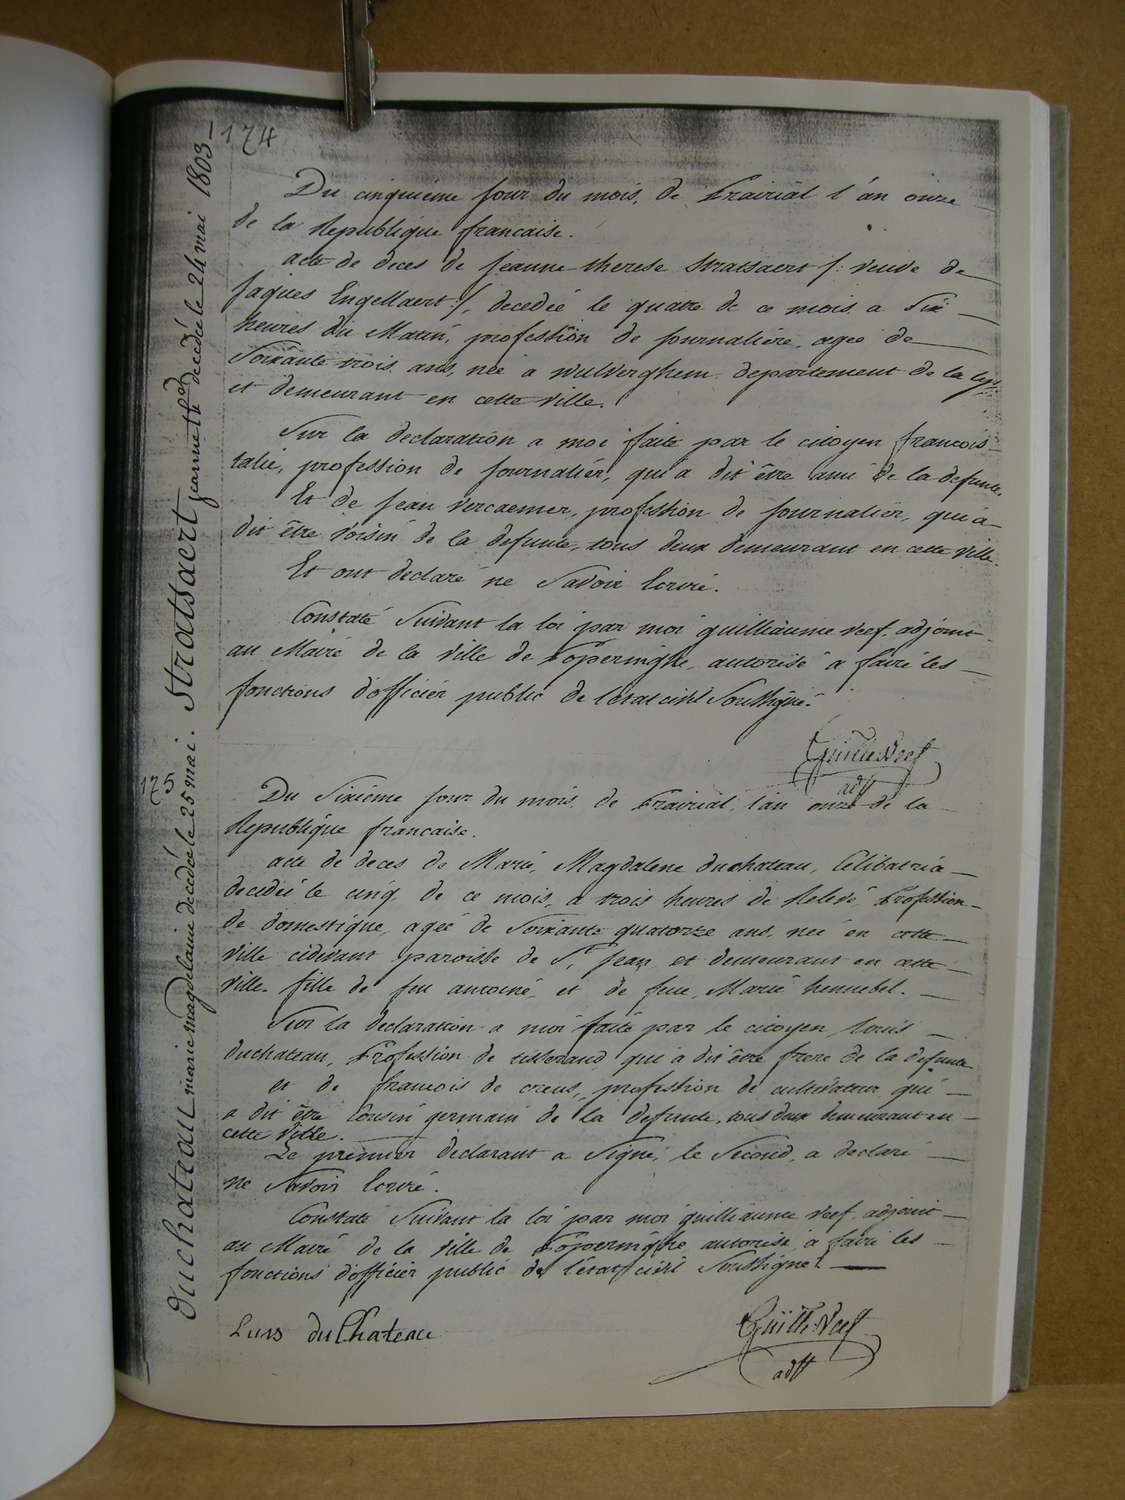 174
Du cinquième jour du mois de Prairial l'an onze
de la Republique francaise.
acte de deces de Jeanne therese Stratsaert /: veuve de
Jaques Engellaert :/, decedée le quatre de ce mois a Six
heures du Matin, profession de journalière, agée de
Soixante trois ans, née a wulverghem departement de la Lys
et demeurant en cette ville.
Sur la declaration a moi faite par le citoyen francois
talie, profession de journalier, qui a dit être ami de la defunte.
Et de Jean Vercaemer, profession de journalier, qui a
dit être voisin de la defunte, tous deux demeurant en cette ville.
Et ont declaré ne Savoir Ecrire.
Constaté Suivant la loi par moi guilliaume veef adjoint
au Maire de la ville de Poperinghe, autorisé a faire les
fonctions d'officier public de l'état civil Soussigné.
Guille Veef
adjt
175
Du Sixième jour du mois de Prairial l'an onze de la
Republique francaise.
acte de deces de Marie Magdalene duchateau, Celibataria
decedée le cinq de ce mois, a trois heures de Relevé, Profession
de domestique, agée de Soixante quatorze ans, née en cette
ville cidivant paroisse de St Jean et demeurant en cette
ville. fille de feu antoine, et de feue Marie hennebel.
Sur la declaration a moi faite par le citoyen louis
duchateau, Profession de tisserand, qui a dit être frere de la defunte
et de francois de creus, profession de cultivateur, qui
a dit être Cousin germain de la defunte, tous deux demeurant en
cette Ville.
Le premier declarant a Signé, le Second a declaré
ne Savoir Ecrire.
Constaté Suivant la loi par moi guilliaume veef adjoint
au Maire de la Ville de Poperinghe autorisé a faire les
fonctions d'officier public de l'état civil Soussigné.
Luis duChateau
Guille Veef
adjt
duchateau marie magdelaine decedée le 25 mai. Stratsaert jeanne th. decedée le 24 mai 1803